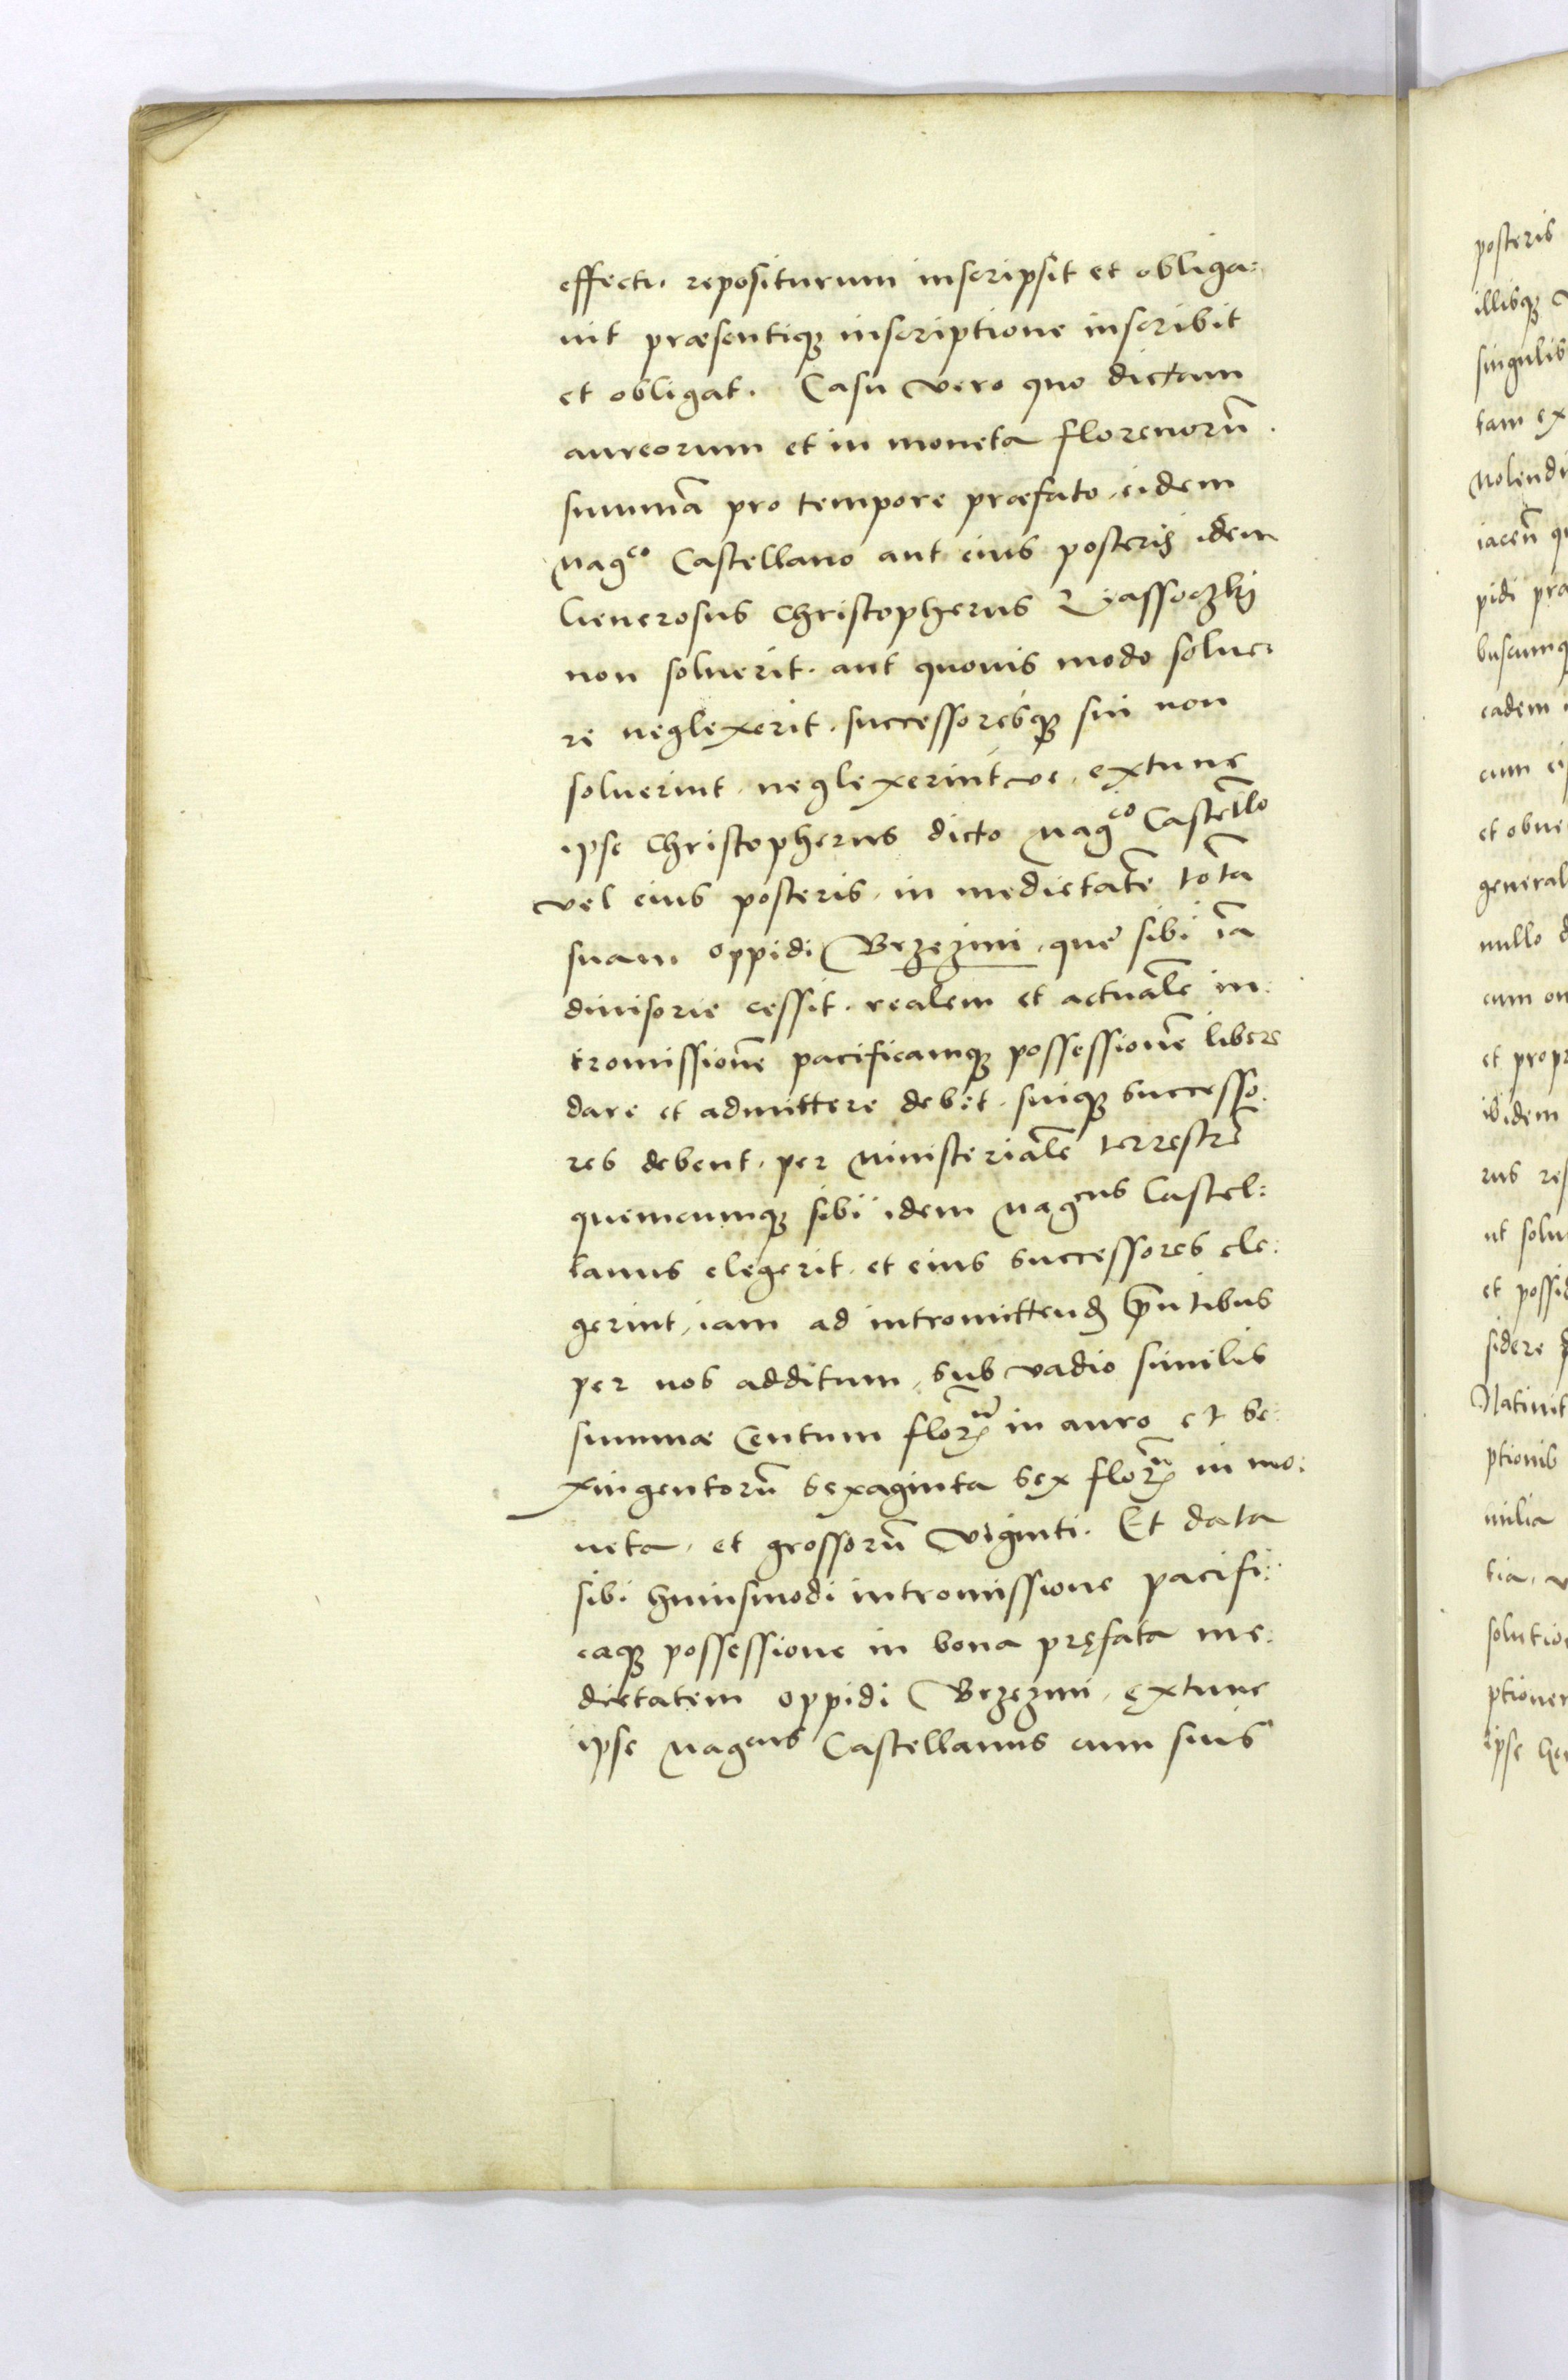 effectu. repositurum inscripsit et obliga:
uit præsentiq; inscriptione inscribit
et obligat. Casu vero quo dictam
aureorum et in moneta florenorũ
summã pro tempore præfato, eidem
Mag^co Castellano aut eius posteris idem
Generosus Christopherus Lassoczkj
non soluerit. aut quouis modo solue:
re neglexerit. successoresq; sui non
soluerint, neglexerintve, extunc
ipse Christopherus dicto Mag^co Castelło
vel eius posteris, in medietatẽ totã
suam oppidi Brzezini, que sibi iã
diuisorie cessit. realem et actualẽ in:
tromissionẽ pacificamq; possessionẽ libere
dare et admittere debet. suiq; successo:
res debent, per Ministerialẽ terrestrẽ
quemcumq; sibi idem Mag^cus Castel:
lanus elegerit. et eius successores ele:
gerint, iam ad intromittend̃ p̃ntibus
per nos additum, sub vadio similis
summæ Centum flor̃ in auro et se:
xingentorũ sexaginta sex flor̃ in mo:
neta, et grossorũ viginti. Et data
sibi huiusmodi intromissione pacifi:
caq; possessione in bona pręfata me:
dietatem oppidi Brzezini, extunc
ipse Mag^cus Castellanus cum suis
posteris
illisq;
singulis
tam ex
iacen̄
pidi
eadem
cum
et obue
general
nullo
cum
et prop
ibidem
rus
ut solu
et possi
sidere
Natiuit
ptionis
milia
tia,
solutio
ptionem
ipse